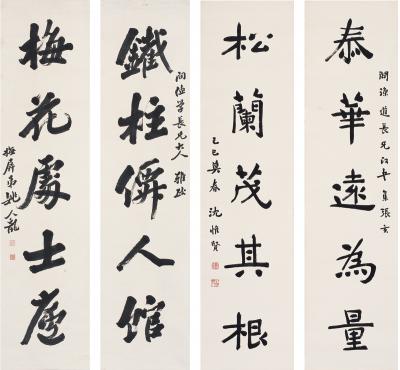 道長兄 集張玄
泰華遠為量
松蘭茂其根
乙巳莫春 沈惟賢
學長兄大人 雅政
鐵柱僊人館
梅花處士廬
屏弟姚人龍